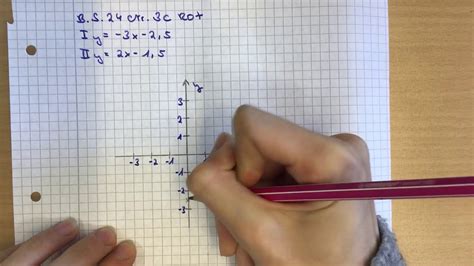 B.S. 24 Nr. 3c rot
I y = -3x - 2,5
II y = 2x - 1,5
y
3
2
1
-3 -2 -1
-1
-2
-3